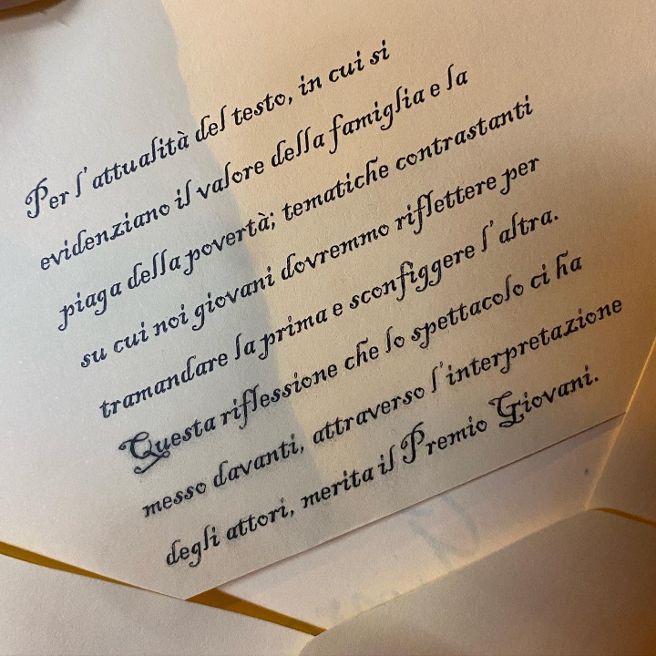 Per l'attualità del testo, in cui si
evidenziano il valore della famiglia e la
piaga della povertà; tematiche contrastanti
su cui noi giovani dovremmo riflettere per
tramandare la prima e sconfiggere l'altra.
Questa riflessione che lo spettacolo ci ha
messo davanti, attraverso l'interpretazione
degli attori, merita il Premio Giovani.